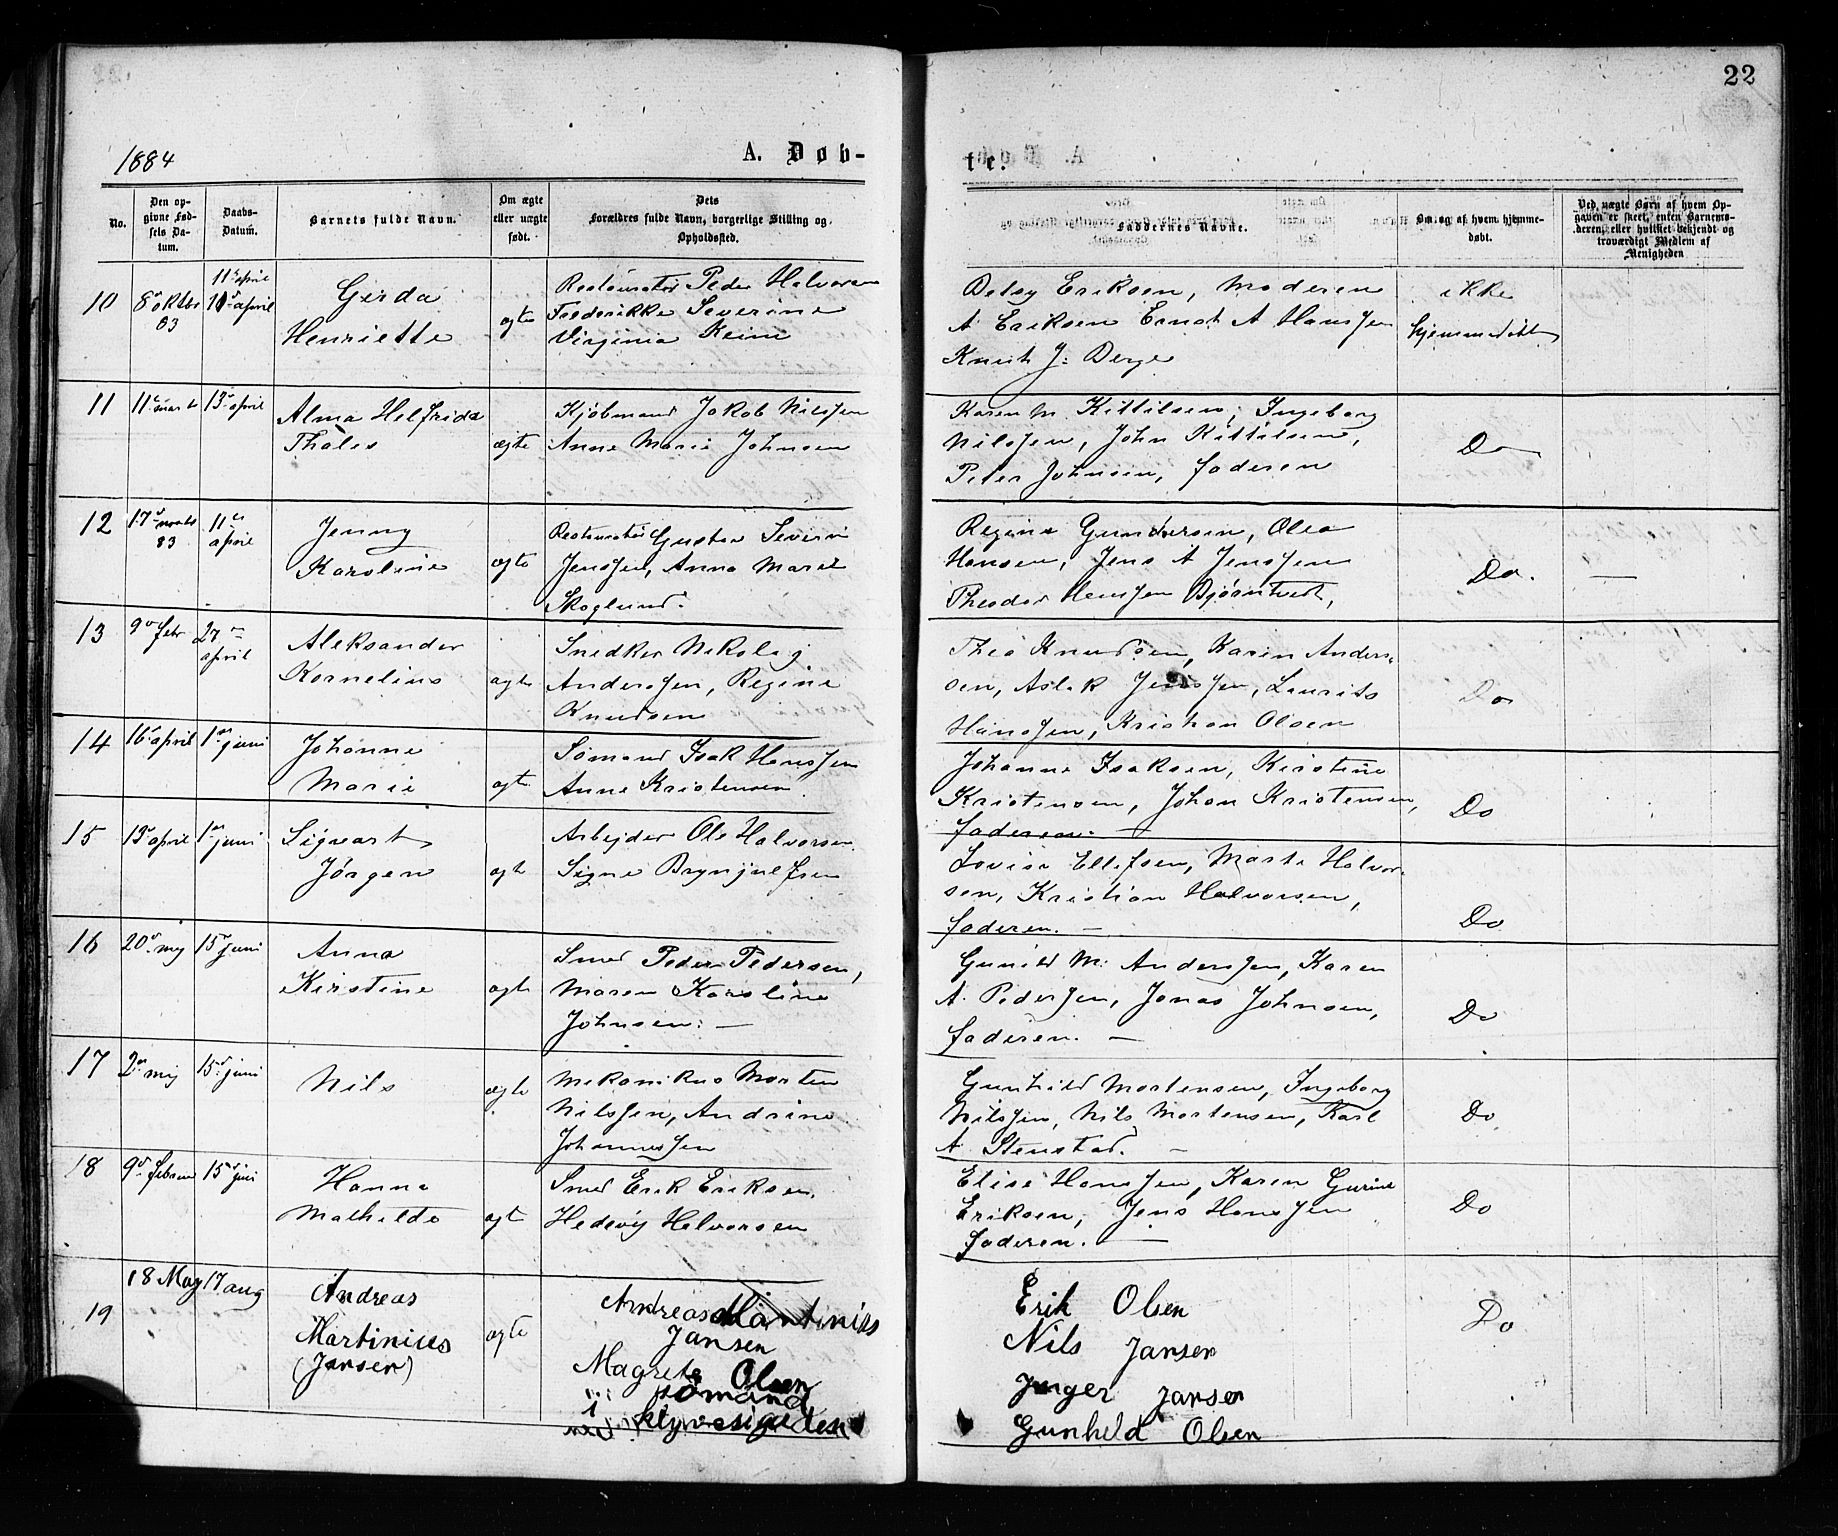 22
1884
A. Døb-
te.
No.
Den op-
givne Fød-
sels Da-
tum.
Daabs-
Datum.
Barnets fulde Navn.
Om ægte
eller uægte
født.
Dets
Forældres fulde Navn, borgerlige Stilling og
Opholdssted.
Faddernes Navne.
Om og af hvem hjemme-
døbt.
Ved uægte Børn af hvem Op-
gaven er skeet, enten Barnemo-
deren, eller hvilket bekjendt og
troværdigt Medlem af
Menigheden
10
8de oktbr
83
11te april
april
Gerda
Henriette
ægte
Restauratør Peder Halvorsen
Frederikke Severine
Virginia Keim
Betsy Eriksen, Moderen
A Eriksen Ernst A Hanssen
Knut J. Berge
ikke
hjemmedøbt
11
11te marts
13de april
Alma Helfrida
Thales
ægte
Kjøbmand Jakob Nilssen
Anne Marie Johnsen
Karen M. Kittilsen, Ingeborg
Nilssen, John Kittilsen,
Peter Johnsen, faderen
Do
12
17de novbr
83
11te
april
Jenny
Karoline
ægte
Restauratør Gustav Severin
Jenssen, Anna Marie
Skoglund.
Regine Gundersen, Olea
Hansen, Jens A Jenssen
Theodor Hanssen Bjørntvedt,
Do.
13
9de febr
27de
april
Aleksander
Kornelius
ægte
Snedker Nikolaj
Anderssen, Regine
Knudsen
Thea Knudsen, Karin Anders-
sen, Aslak Jenssen, Laurits
Hanssen, Kristian Olsen
Do
14
16de april
1ste juni
Johanne
Marie
ægte
Sømand Isak Hanssen
Anne Kristensen
Johanne Isaksen, Kirstine
Kristensen, Johan Kristensen,
faderen. —
Do
15
13de april
1ste juni
Sigvart
Jørgen
ægte
Arbejder Ole Halvorsen
Signe Brynjulfsen
Lovise Ellefsen, Marte Halvor-
sen, Kristian Halvorsen,
faderen. —
Do
16
20de mj
15de juni
Anna
Kirstine
ægte
Smed Peder Pedersen,
Maren Karoline
Johnsen. —
Gunild M. Anderssen, Karen
A. Pederssen, Jonas Johnsen,
faderen. —
Do
17
2den mj
15de juni
Nils
ægte
Mekanikus Morten
Nilssen, Andrine
Johannessen
Gunhild Mortensen, Ingeborg
Nilssen, Nils Mortensen, Karl
A. Stenstad. —
Do
18
9de februar
15de juni
Hanna
Mathilde
ægte
Smed Erik Eriksen
Hedevig Halvorsen
Elise Hanssen, Karen Gurine
Eriksen, Jens Hanssen
faderen. —
Do
19
18 May
17 aug
Andreas
Martinius
(Jansen)
ægte
Andreas Martinius
Jansen
Magrete Olsen
sømand
i
Erik Olsen
Nils Jansen
Inger Jansen
Gunheld Olsen
Do